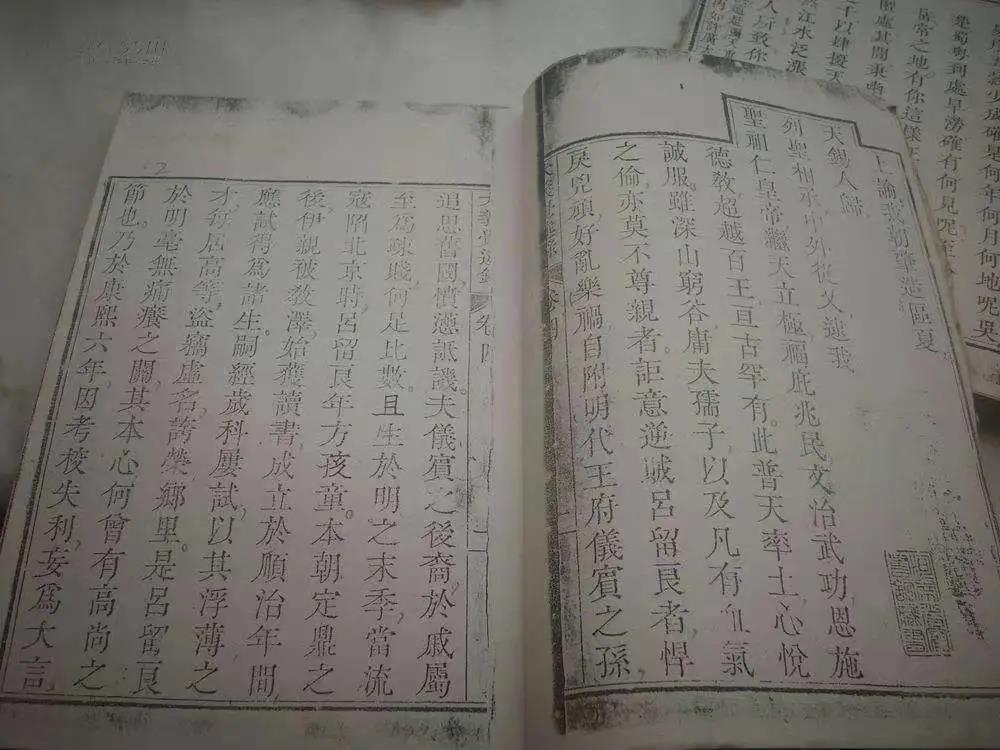 楚蜀粵到處旱澇確有何見呢
居常之地有你這樣
處其間秉
江水泛漲
人所致你
上諭我朝肇造區夏
天錫人歸
列聖相承中外從乂逮我
聖祖仁皇帝繼天立極福庇兆民文治武功恩施
德教超越百王亘古罕有此普天率土心悅
誠服雖深山窮谷庸夫孺子以及凡有血氣
之倫亦莫不尊親者詎意逆賊呂留良者悍
戾兇頑好亂樂禍自附明代王府儀賓之孫
大義覺迷錄 卷四 一
追思舊國憤懣詆譏夫儀賓之後裔於戚屬
至爲疎賤何足比數。且生於明之末季,當流
寇陷北京時,呂留良年方孩童。本朝定鼎之
後,伊親被教澤,始獲讀書,成立於順治年間
應試得爲諸生。嗣經歲科屢試,以其浮薄之
才,每居高等,盜竊虛名,誇榮鄉里。是呂留良
於明毫無痛癢之關,其本心何曾有高尚之
節也。乃於康熙六年因考校失利,妄爲大言,
2